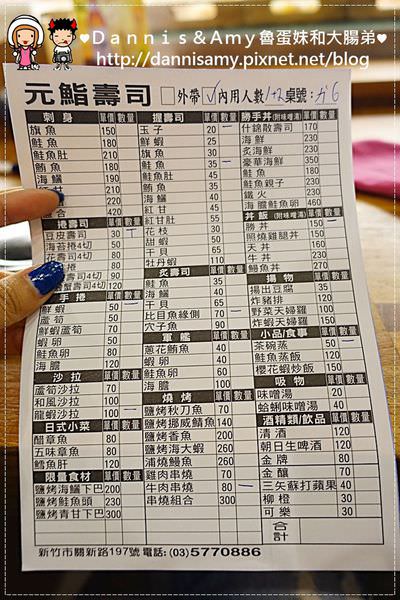 ♥Dannis&Amy魯蛋妹和大腸弟♥
http://dannisamy.pixnet.net/blog
元鮨壽司 □外帶 √內用人數/+2 桌號:ガ6
刺身 單價 數量
旗魚 150
鮭魚 180
鮭魚肚 210
鮪魚
海鱺
捲壽司 單價 數量
30
海苔捲4切 50
壽司4切 90
手捲 單價 數量
鮮蝦 50
蘆筍 50
鮮蝦蘆筍 60
蝦卵 50
鮭魚卵 80
海膽 120
沙拉 單價 數量
蘆筍沙拉 70
和風沙拉 100
龍蝦沙拉 100
日式小菜 單價 數量
醋章魚 50
五味章魚 80
鱈魚肝 120
限量食材 單價 數量
鹽烤海鱺下巴 200
鹽烤鮭魚頭 230
鹽烤青甘下巴 300
握壽司 單價 數量
玉子 20
鮮蝦 25
旗魚 30
鮭魚 35
鮪魚 35
海鱺 40
紅甘 45
紅甘肚 55
花枝
甜蝦
干貝
牡丹蝦
炙壽司 單價 數量
鮭魚
海鱺
干貝
比目魚緣側
穴子魚
軍艦 單價 數量
蔥花鮪魚 40
蝦卵 40
鮭魚卵 60
海膽
燒烤 單價 數量
鹽烤秋刀魚 70
鹽烤挪威鯖魚 140
鹽烤香魚 200
鹽烤海大蝦 260
浦燒鰻魚 250
雞肉串燒 70
牛肉串燒 80
串燒組合 300
勝手丼(附味噌湯) 單價 數量
什錦散壽司 170
海鮮 230
炙海鮮 230
豪華海鮮 350
鮭魚 180
鮭魚親子 230
鐵火 230
海膽鮭魚卵 450
丼飯(附味噌湯) 單價 數量
勝丼 150
照燒雞腿丼 150
天丼 180
牛丼 180
鰻魚丼 280
揚物 單價 數量
揚出豆腐 35
炸豬排 120
野菜天婦羅 100
炸蝦天婦羅 150
小品/食事 單價 數量
茶碗蒸 50
鮭魚蒸飯 120
櫻花蝦炒飯 120
吸物 單價 數量
味噌湯 30
蛤蜊味噌湯 40
酒精類/飲品 單價 數量
清酒 120
朝日生啤酒 120
金牌 80
金釀 80
三矢蘇打蘋果 40
柳橙 30
可樂 30
合計
新竹市關新路197號 電話:(03)5770886